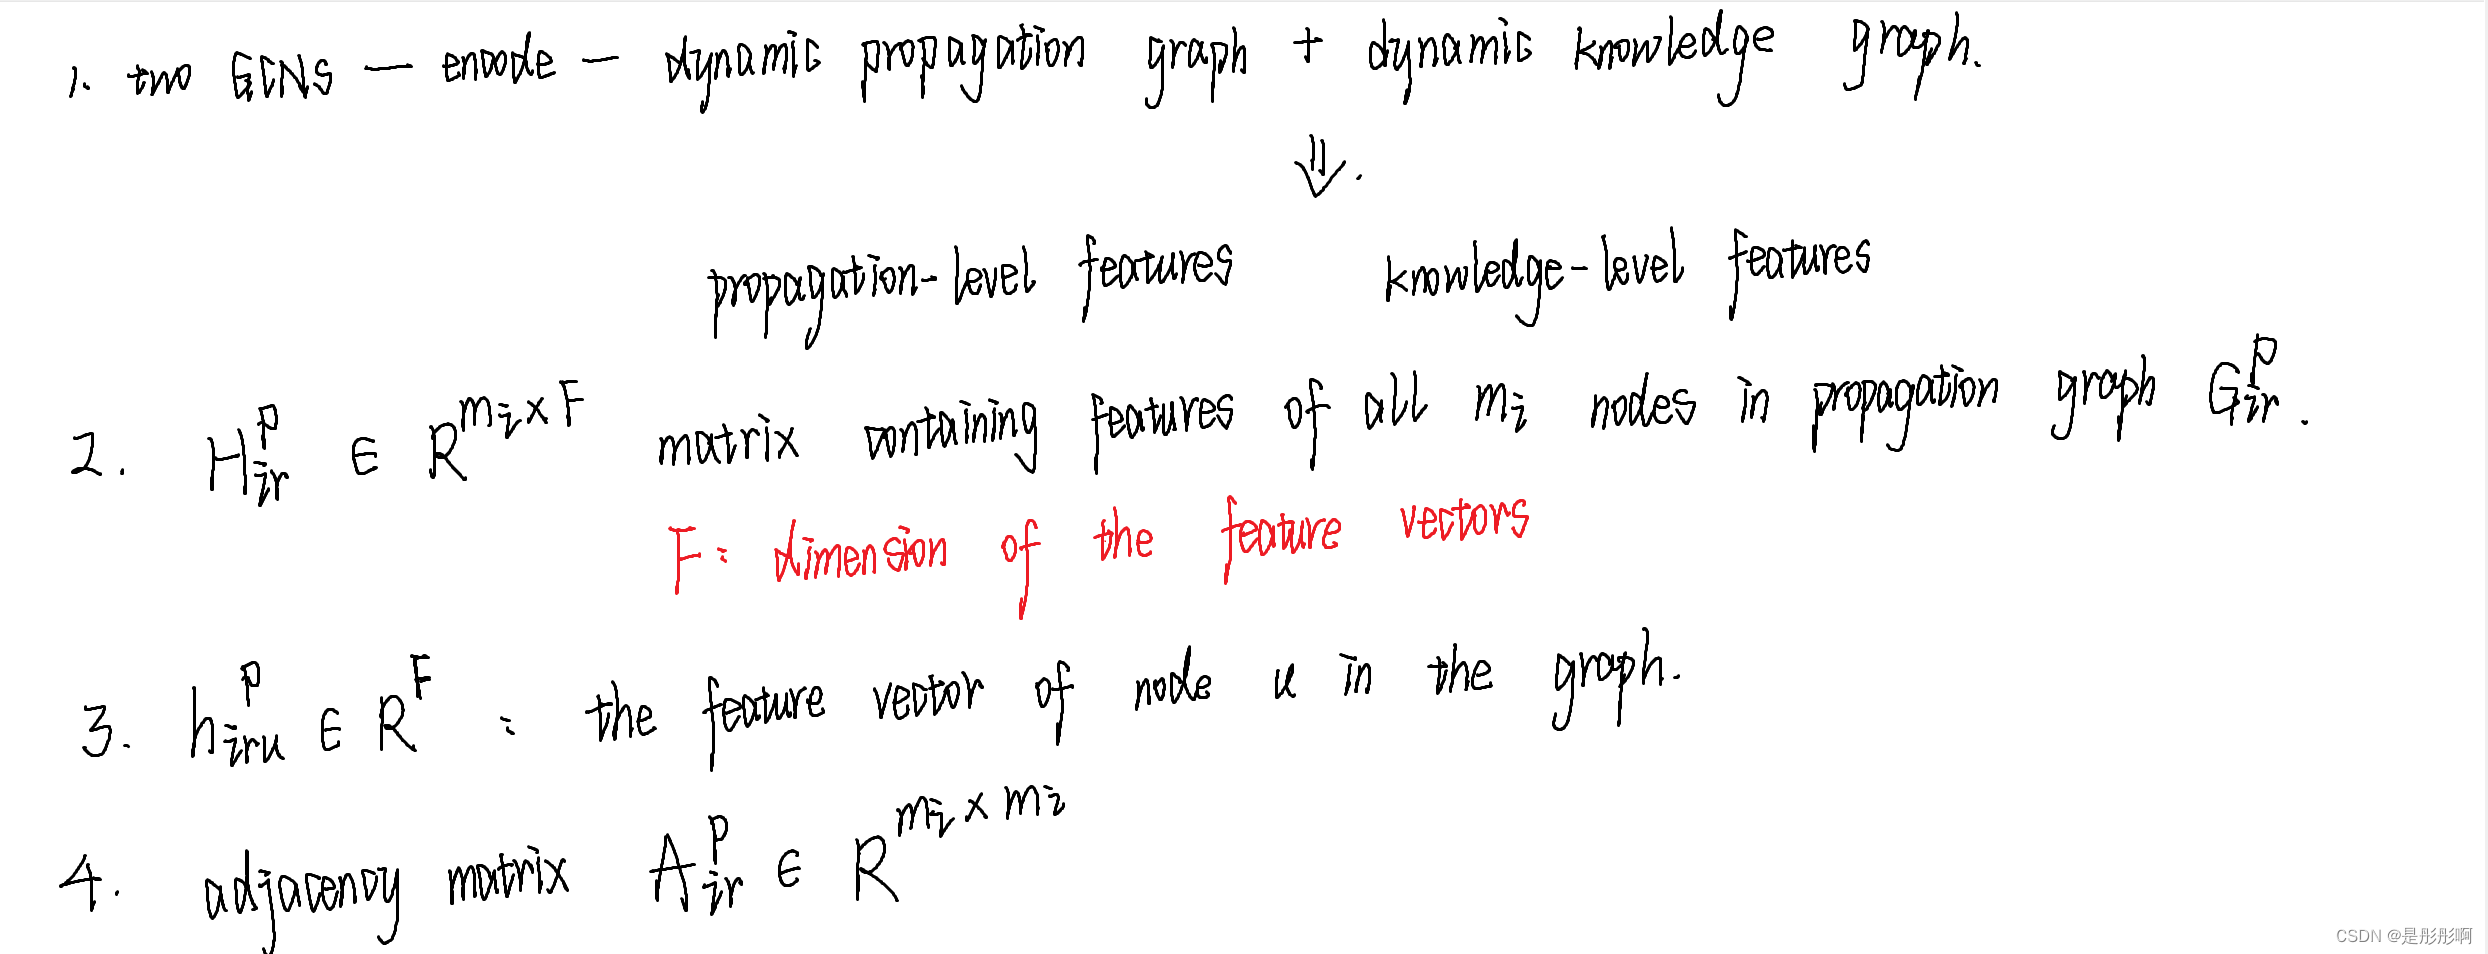 1. two GCNS — encode — dynamic propagation graph + dynamic knowledge graph.
⇓.
propagation-level features knowledge-level features
2. H_{ir}^{P} ∈ R^{m_i × F} matrix containing features of all m_i nodes in propagation graph G_{ir}^{P}.
F: dimension of the feature vectors
3. h_{iru}^{P} ∈ R^{F} : the feature vector of node u in the graph.
4. adjacency matrix A_{ir}^{P} ∈ R^{m_i × m_i}
CSDN @是彤彤啊